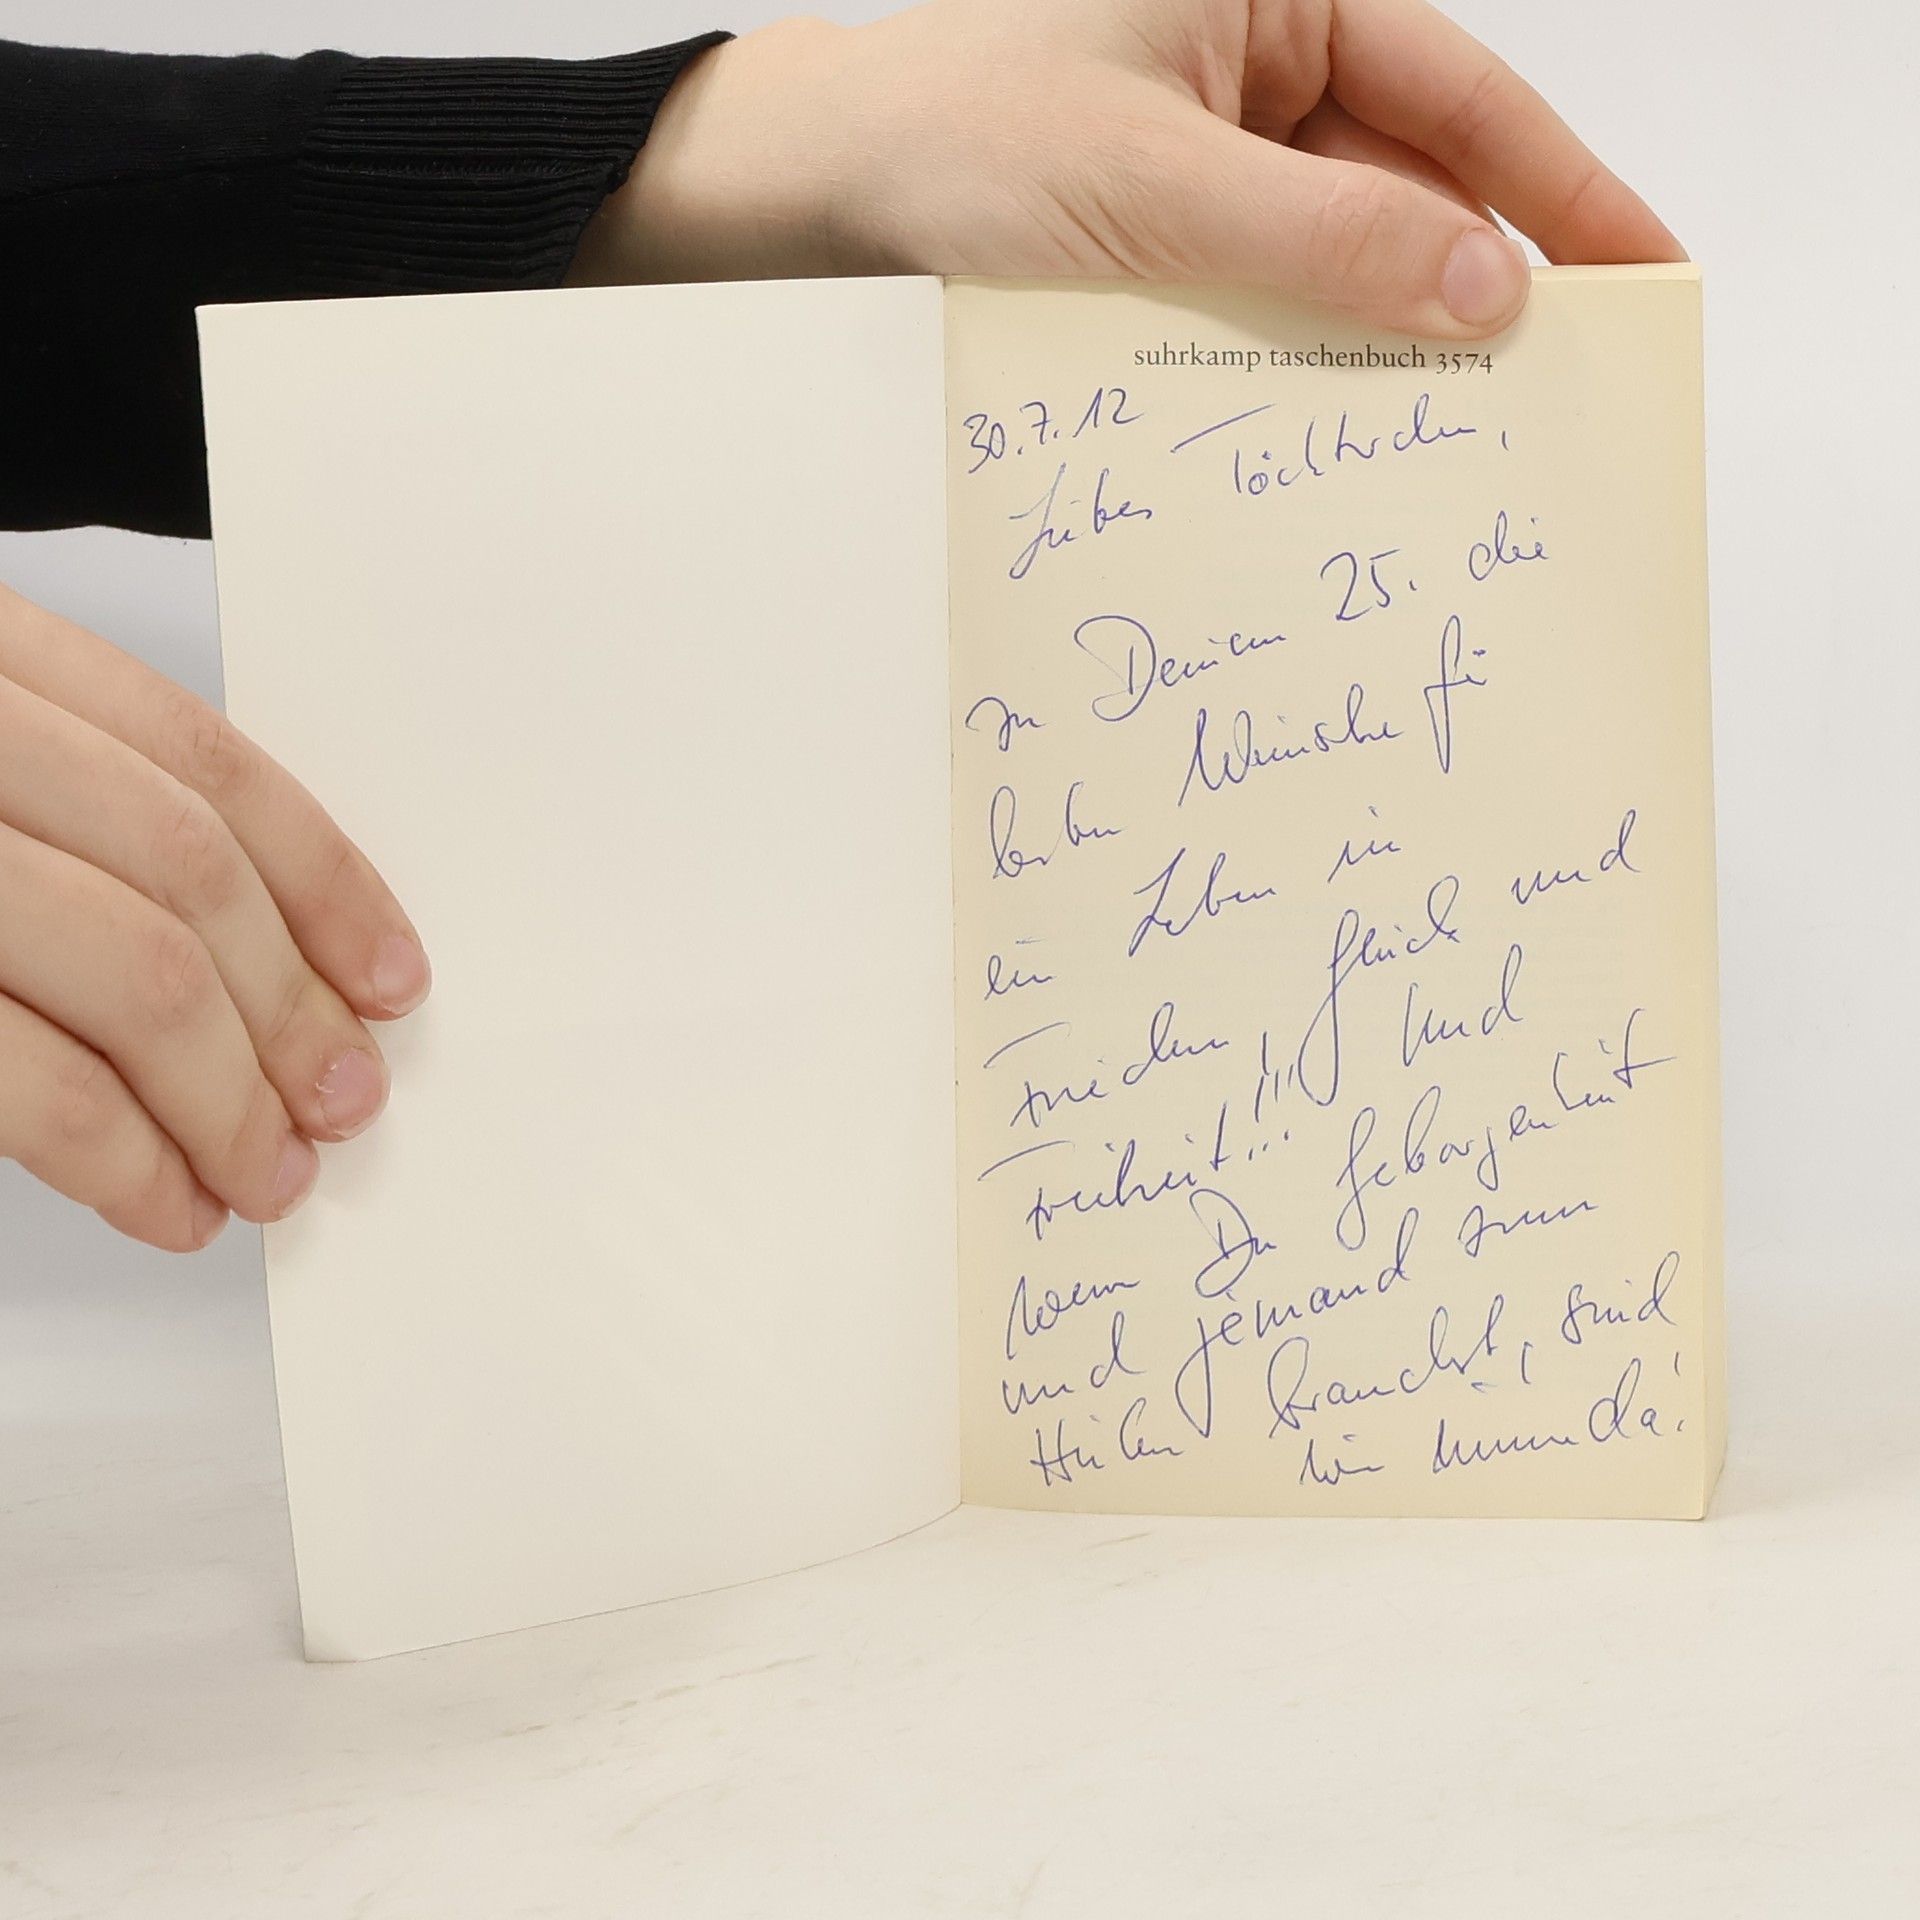 suhrkamp taschenbuch 3574
30.7.12
Liebes Töchterchen,
zu Deinem 25. die
besten Wünsche für
ein Leben in
Frieden, Glück und
Freiheit!!! Und
wenn Du Geborgenheit
und jemand zum
Heulen brauchst, sind
wir immer da!